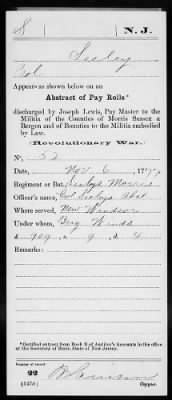 S N. J.
Seeley
Col
Appears as shown below on an
Abstract of Pay Rolls*
discharged by Joseph Lewis, Pay Master to the
Militia of the Counties of Morris Sussex &
Bergen and of Bounties to the Militia embodied
by Law.
(Revolutionary War.)
No. 52
Date, Nov 6, 1777
Regiment or Bat., Seeleys Morris
Officer's name, Col Seeleys Abst
Where served, New Windsor
Under whom, Brig Winds
£ 909 . 9 . 4
Remarks:
*Certified extract from Book B of Auditor's Accounts in the office
of the Secretary of State, State of New Jersey.
Number of record.
22
Copyist.